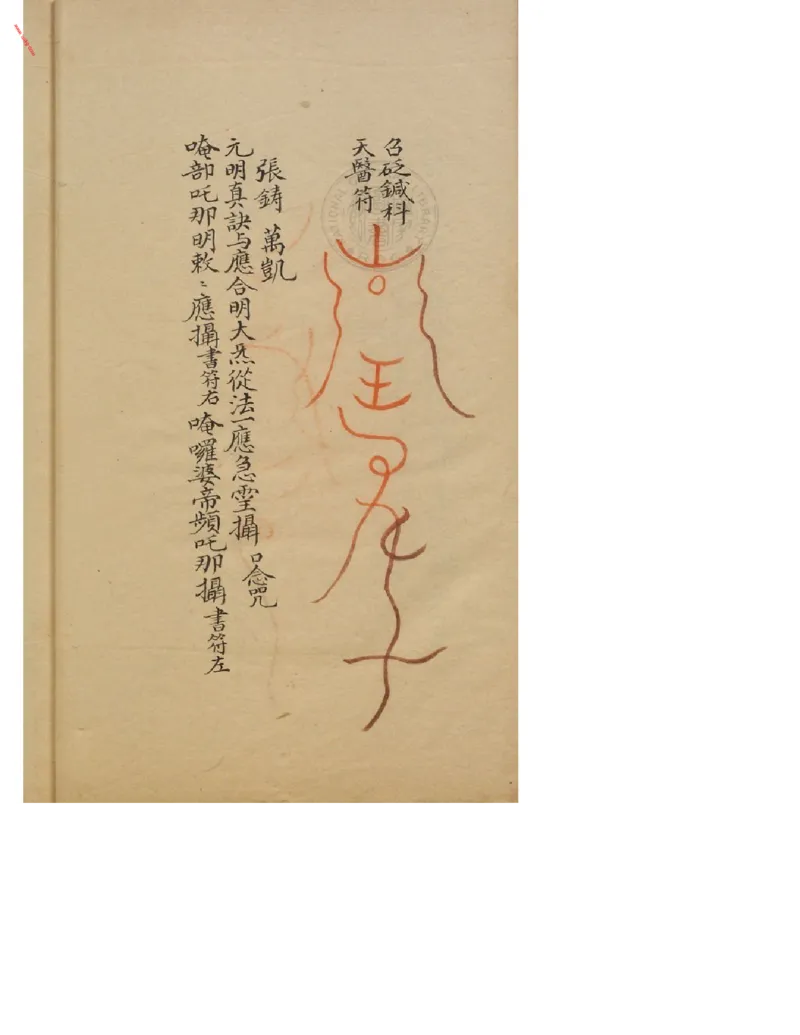 召砭鍼科
天醫符
張鑄 萬凱
元明真訣与應合明大炁從法一應急霊攝 口念咒
唵部吒那明敕〻應攝書符右 唵囉婆帝頻吒那攝 書符左